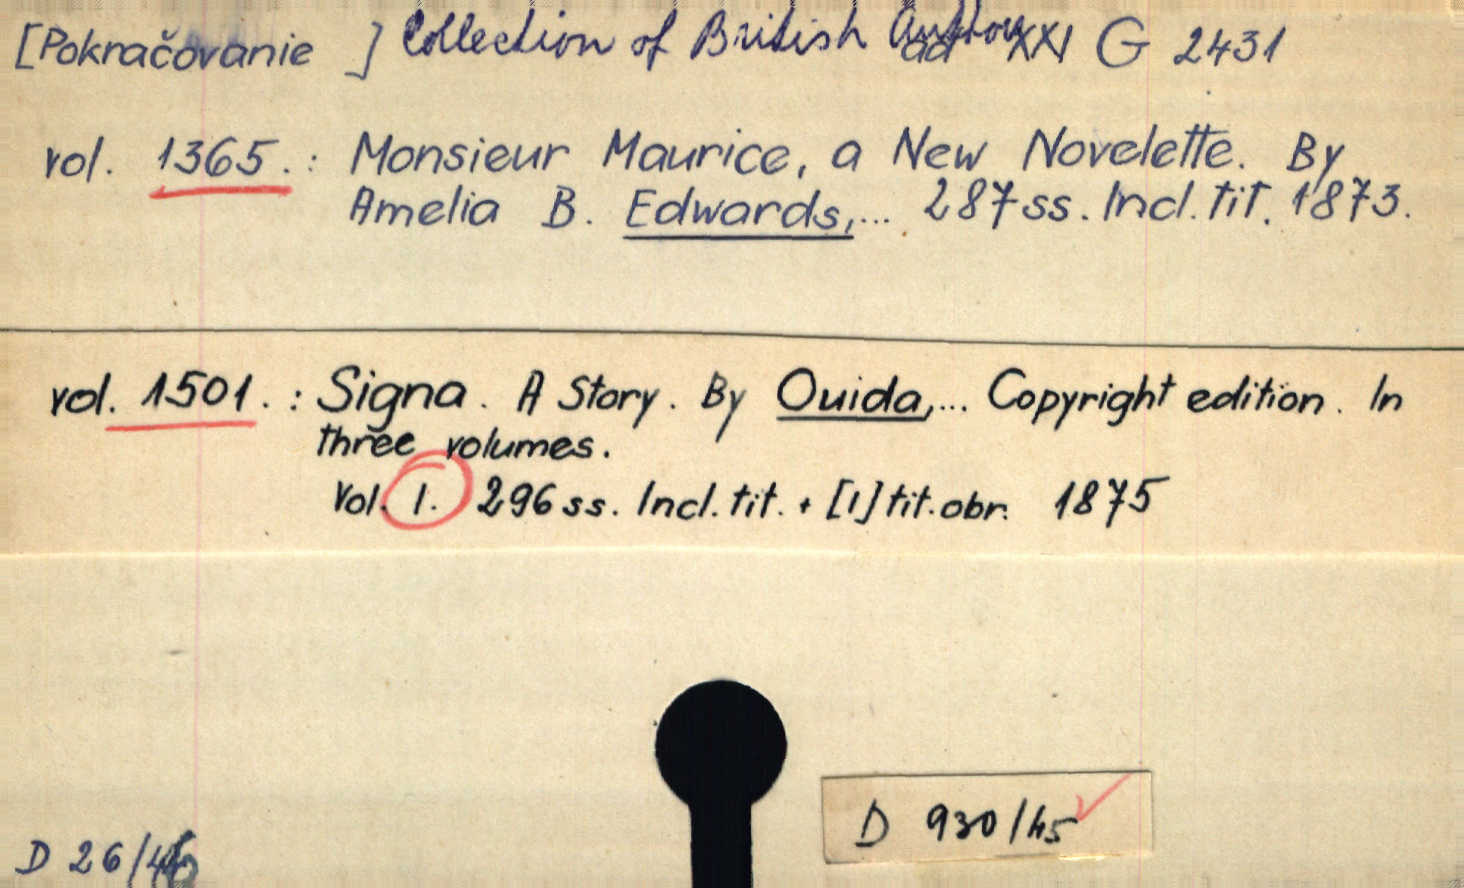 [Pokračovanie ] Collection of British Authors ad XXI G 2431
vol. 1365.: Monsieur Maurice, a New Novelette. By
Amelia B. Edwards,... 287 ss. Incl. tit. 1873.
vol. 1501.: Signa. A Story. By Ouida,... Copyright edition. In
three volumes.
Vol. I. 296 ss. Incl. tit. + [1] tit. obr. 1875
D 930/45
D 26/46